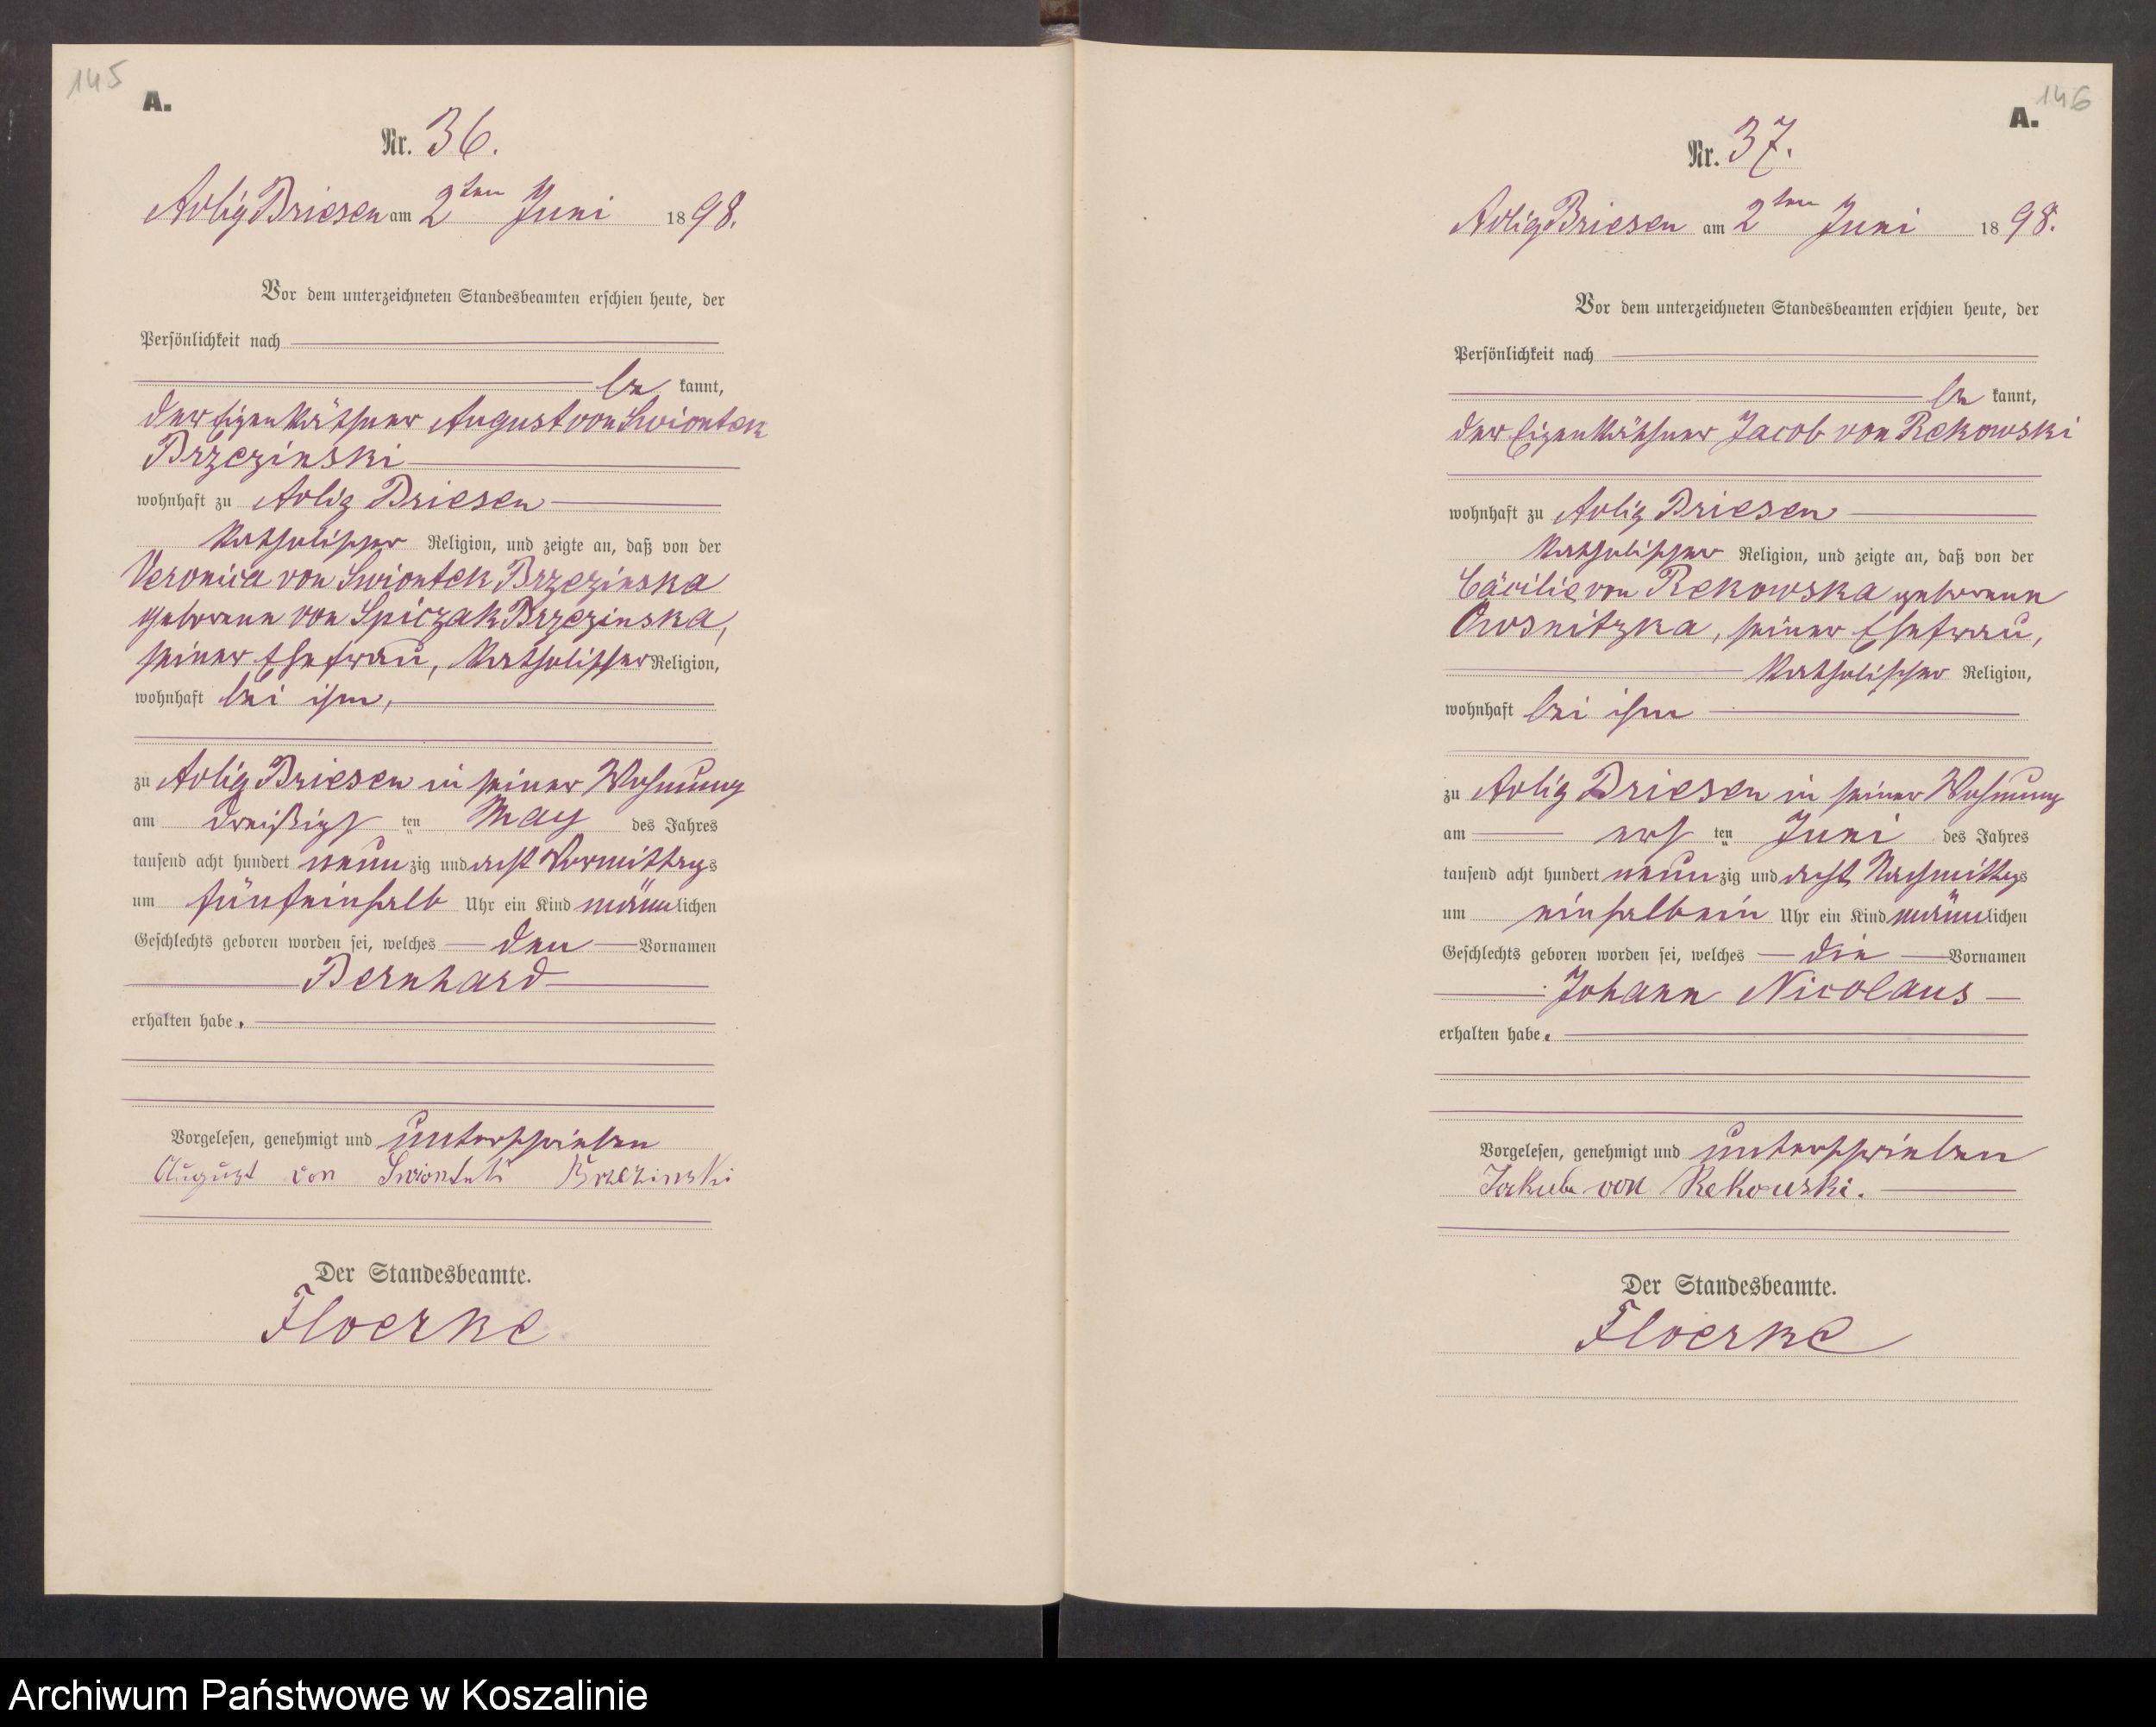 145
A.
Nr. 36.
Adlig Briesen am 2ten Juni 1898.
Vor dem unterzeichneten Standesbeamten erschien heute, der
Persönlichkeit nach
be kannt,
der Eigenkäthner August von Swiontek
Brzezinski
wohnhaft zu Adlig Briesen
katholischer Religion, und zeigte an, daß von der
Veronica von Swiontek Brzezinska
geborene von Spiczak Brzezinska,
seiner Ehefrau, katholischer Religion,
wohnhaft bei ihm,
zu Adlig Briesen in seiner Wohnung
am dreißigsten May des Jahres
tausend acht hundert neunzig und acht Vormittags
um fünfeinhalb Uhr ein Kind männlichen
Geschlechts geboren worden sei, welches den Vornamen
Bernhard
erhalten habe.
Vorgelesen, genehmigt und unterschrieben
August von Swiontek Brzezinski
Der Standesbeamte.
Floerke
146
A.
Nr. 37.
Adlig Briesen am 2ten Juni 1898.
Vor dem unterzeichneten Standesbeamten erschien heute, der
Persönlichkeit nach
be kannt,
der Eigenkäthner Jacob von Rekowski
wohnhaft zu Adlig Briesen
katholischer Religion, und zeigte an, daß von der
Cäcilie von Rekowska geborene
Owsnitzka, seiner Ehefrau,
katholischer Religion,
wohnhaft bei ihm
zu Adlig Briesen in seiner Wohnung
am ersten Juni des Jahres
tausend acht hundert neunzig und acht Nachmittags
um einhalbein Uhr ein Kind männlichen
Geschlechts geboren worden sei, welches die Vornamen
Johann Nicolaus
erhalten habe.
Vorgelesen, genehmigt und unterschrieben
Jakub von Rekowski.
Der Standesbeamte.
Floerke
Archiwum Państwowe w Koszalinie